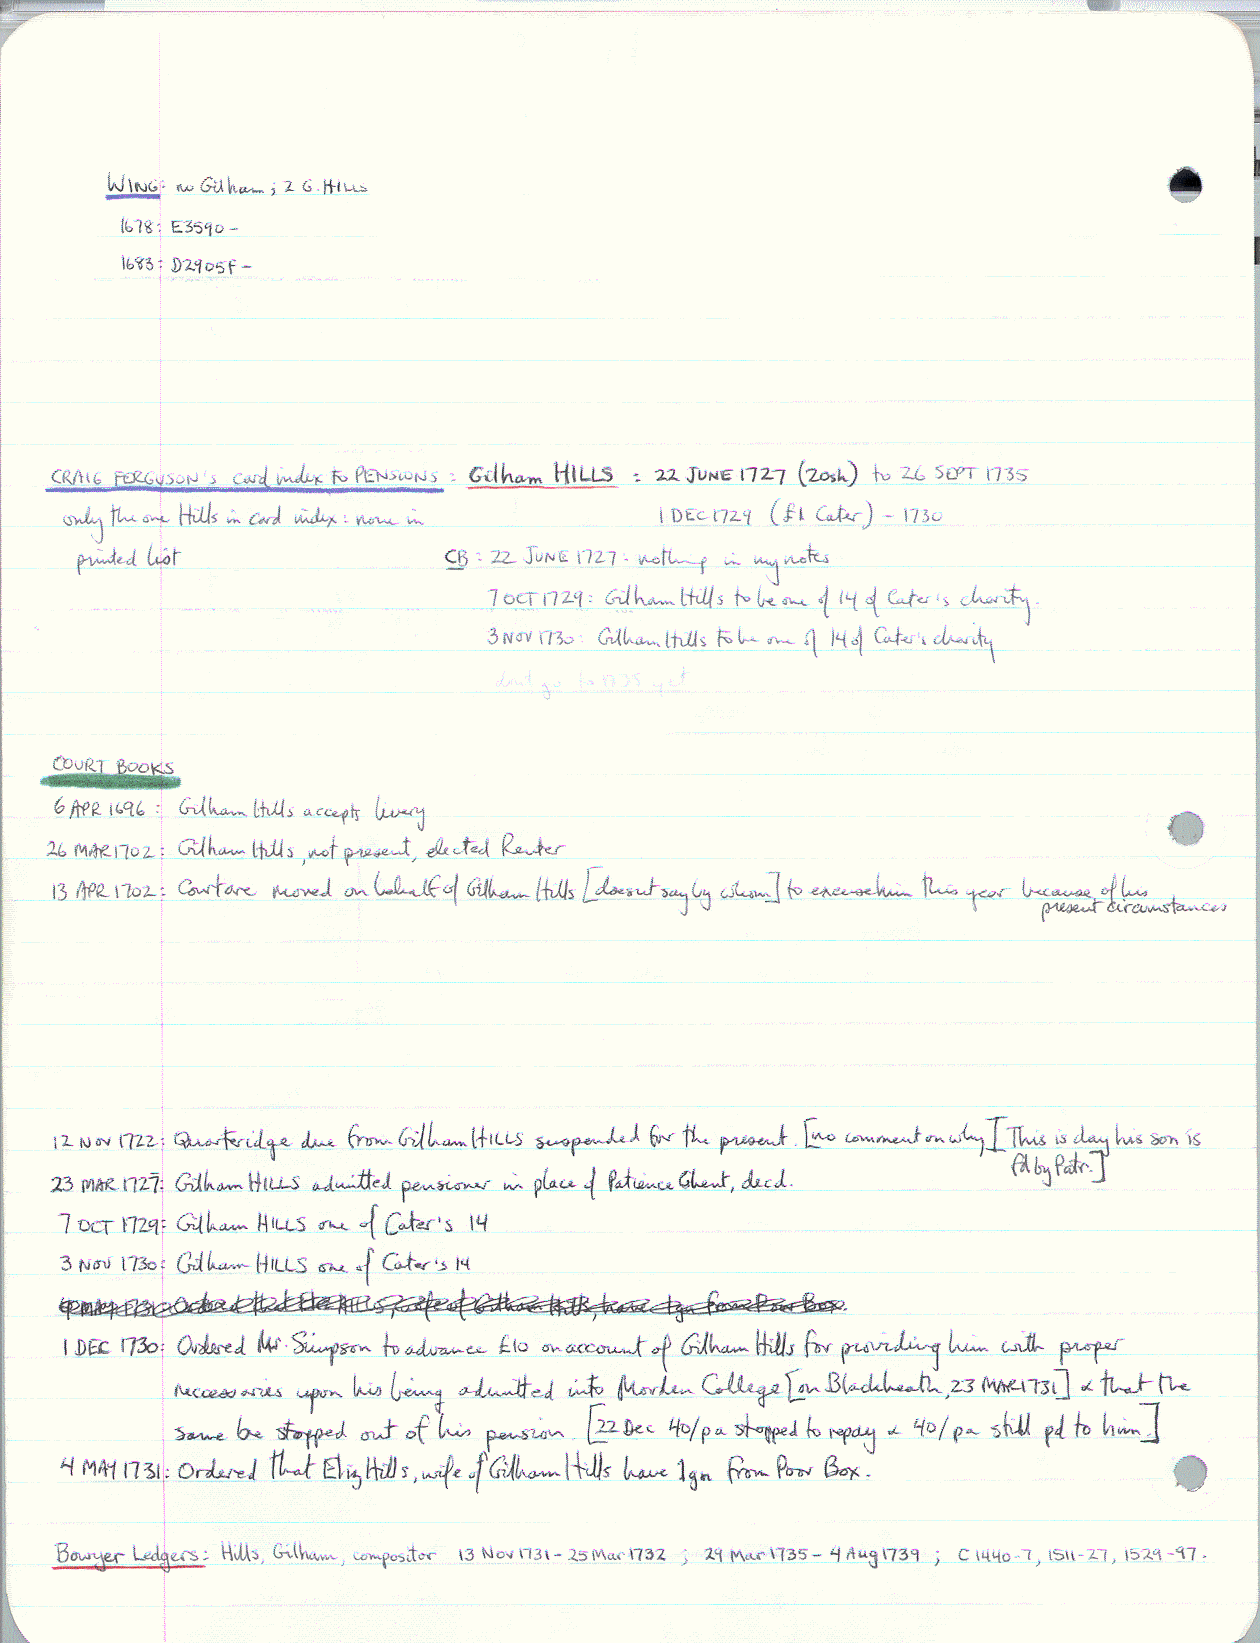 WING: no Gilham; 2 G. HILLS
1678: E3590-
1683: D2905F-
CRAIG FERGUSON's card index to PENSIONS: Gilham HILLS: 22 JUNE 1727 (20sh) to 26 SEPT 1735
only the one Hills in card index: none in
1 DEC 1729 (£1 Cater) - 1730
printed list
CB: 22 JUNE 1727: nothing in my notes
7 OCT 1729: Gilham Hills to be one of 14 of Cater's charity.
3 NOV 1730: Gilham Hills to be one of 14 of Cater's charity
don't go to 1735 yet
COURT BOOKS
6 APR 1696: Gilham Hills accepts livery
26 MAR 1702: Gilham Hills, not present, elected Renter
13 APR 1702: Court are moved on behalf of Gilham Hills [doesn't say by whom] to excuse him this year because of his
present circumstances
12 NOV 1722: Quarteridge due from Gilham HILLS suspended for the present. [no comment on why] [This is day his son is
fd by Patr.]
23 MAR 1727: Gilham HILLS admitted pensioner in place of Patience Ghent, decd.
7 OCT 1729: Gilham HILLS one of Cater's 14
3 NOV 1730: Gilham HILLS one of Cater's 14
4 MAY 1731: Ordered that Eliz HILLS, wife of Gilham Hills, have 1gn from Poor Box.
1 DEC 1730: Ordered Mr. Simpson to advance £10 on account of Gilham Hills for providing him with proper
neccessaries upon his being admitted into Morden College [on Blackheath, 23 MAR 1731] & that the
same be stopped out of his pension. [22 Dec 40/pa stopped to repay & 40/pa still pd to him.]
4 MAY 1731: Ordered that Eliz Hills, wife of Gilham Hills have 1gn from Poor Box.
Bowyer Ledgers: Hills, Gilham, compositor 13 Nov 1731-25 Mar 1732; 29 Mar 1735-4 Aug 1739; C1440-7, 1511-27, 1529-97.